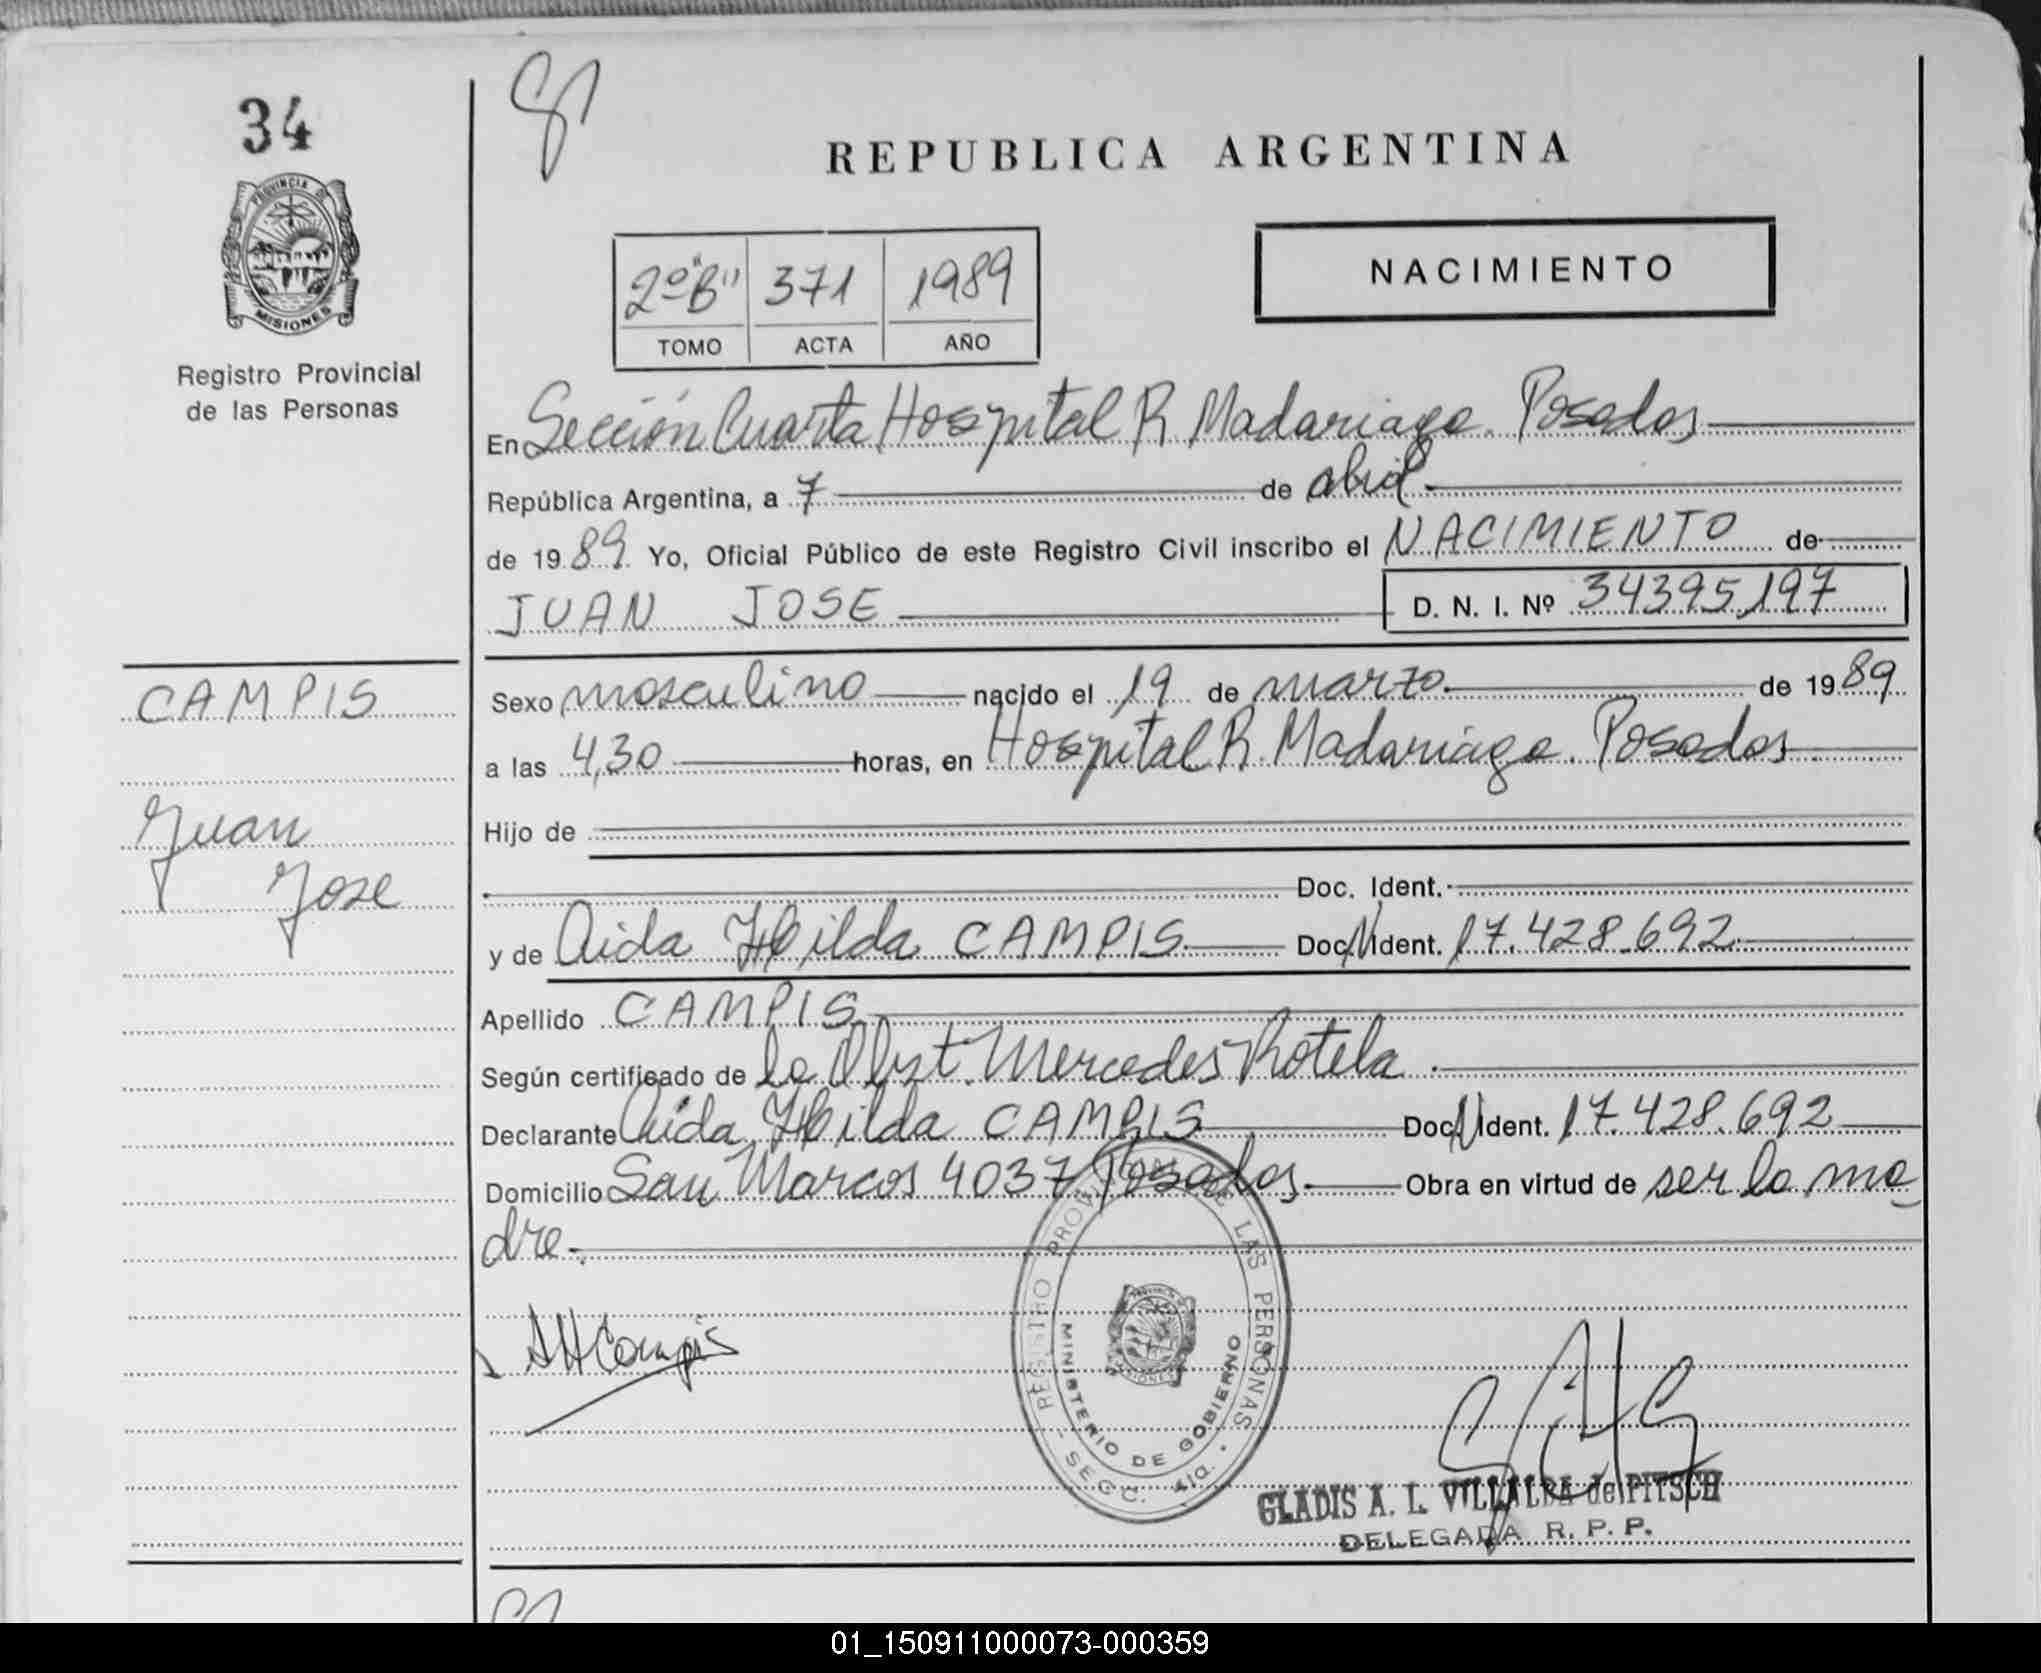 34
PROVINCIA DE
MISIONES
Registro Provincial
de las Personas
REPUBLICA ARGENTINA
2º"B" 371 1989
TOMO ACTA AÑO
NACIMIENTO
En Sección Cuarta Hospital R Madariaga. Posadas
República Argentina, a 7 de abril
de 1989. Yo, Oficial Público de este Registro Civil inscribo el NACIMIENTO de
JUAN JOSE D. N. I. Nº 34395197
CAMPIS
Juan
Jose
Sexo masculino nacido el 19 de marzo de 1989
a las 4,30 horas, en Hospital R. Madariaga. Posadas
Hijo de
Doc. Ident.
y de Aida Hilda CAMPIS Doc. N Ident. 17.428.692
Apellido CAMPIS
Según certificado de la Obst. Mercedes Rotela.
Declarante Aida Hilda CAMPIS Doc. N Ident. 17.428.692
Domicilio San Marcos 4037 Posadas Obra en virtud de ser la ma
dre.
AHCampis
REGISTRO PROVINCIAL DE LAS PERSONAS
MINISTERIO DE GOBIERNO
SECC. 4ta.
GLADIS A. L. VILLALBA de PITSCH
DELEGADA R. P. P.
01_150911000073-000359